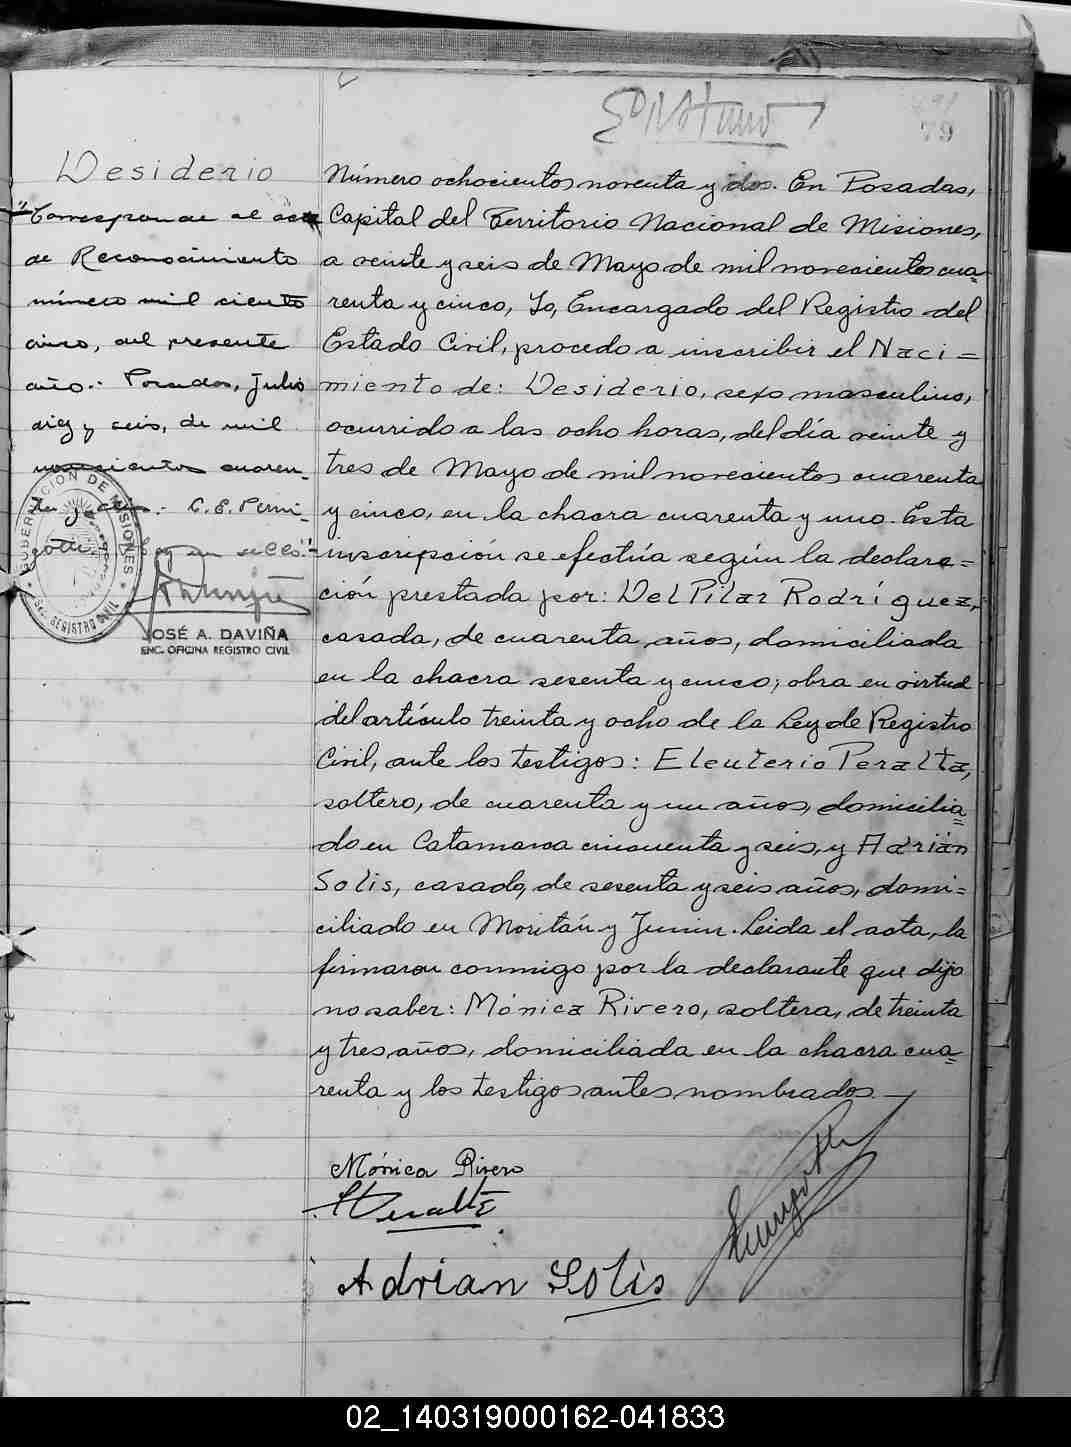 79
Desiderio
"Corresponde al acta
de Reconocimiento
número mil ciento
cinco, del presente
año.- Posadas, Julio
diez y seis, de mil
novecientos cuaren-
ta y cinco.- C. E. Perni-
gotti. Hay un sello."-
GOBERNACION DE MISIONES
REGISTRO CIVIL
JOSÉ A. DAVIÑA
ENC. OFICINA REGISTRO CIVIL
Número ochocientos noventa y dos. En Posadas,
Capital del Territorio Nacional de Misiones,
a veinte y seis de Mayo de mil novecientos cua=
renta y cinco, Yo, Encargado del Registro del
Estado Civil, procedo a inscribir el Naci=
miento de: Desiderio, sexo masculino,
ocurrido a las ocho horas, del día veinte y
tres de Mayo de mil novecientos cuarenta
y cinco, en la chacra cuarenta y uno. Esta
inscripción se efectúa según la declara=
ción prestada por: Del Pilar Rodríguez,
casada, de cuarenta años, domiciliada
en la chacra sesenta y cinco; obra en virtud
del artículo treinta y ocho de la Ley de Registro
Civil, ante los testigos: Eleuterio Peralta,
soltero, de cuarenta y un años, domicilia=
do en Catamarca cincuenta y seis, y Adrián
Solis, casado, de sesenta y seis años, domi=
ciliado en Moritán y Junin. Leida el acta, la
firmaron conmigo por la declarante que dijo
no saber: Mónica Rivero, soltera, de treinta
y tres años, domiciliada en la chacra cua=
renta y los testigos antes nombrados.-
Mónica Rivero
EPeralta
Adrian Solis
02_140319000162-041833